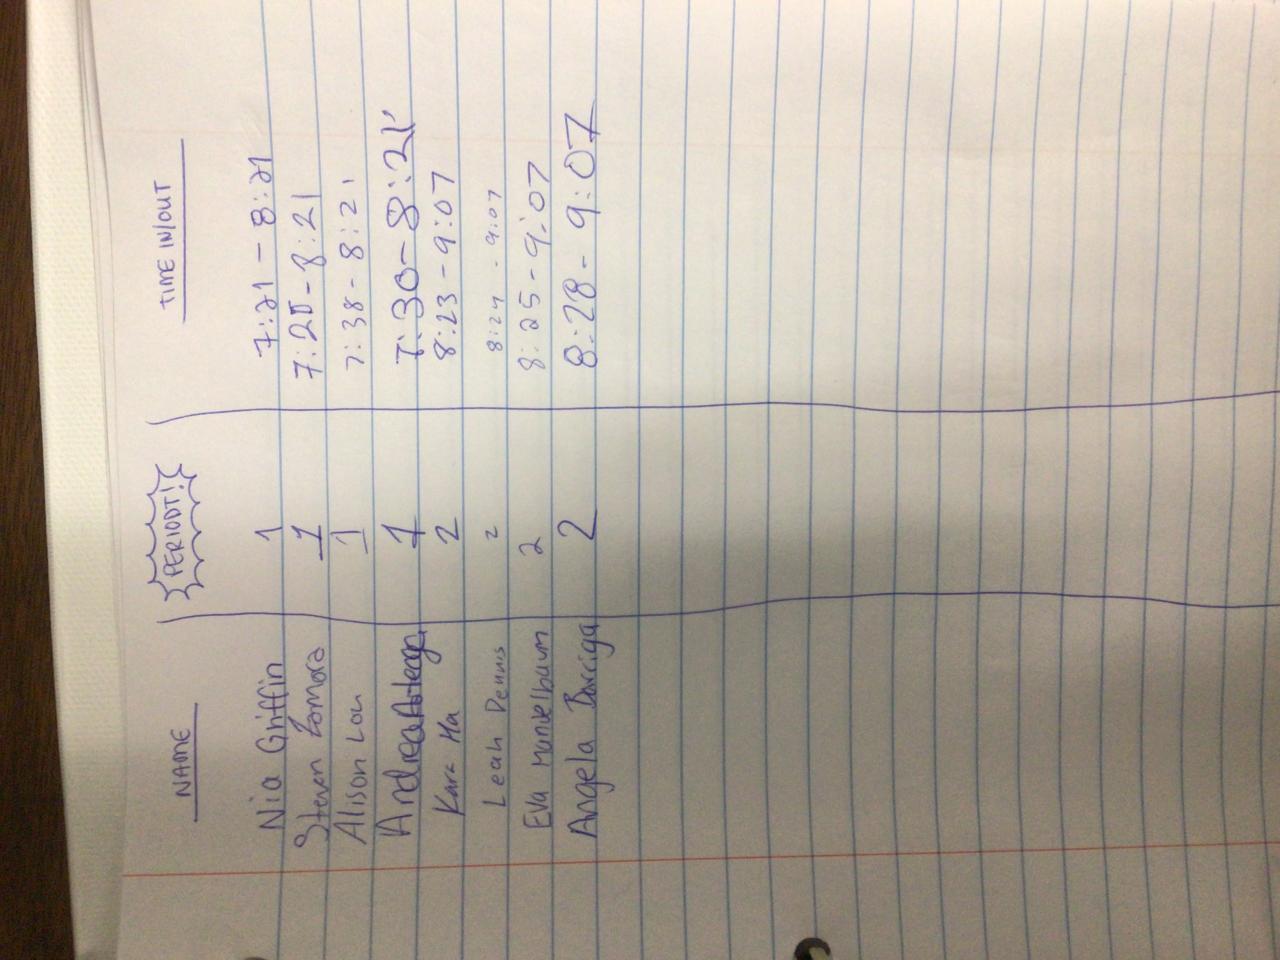 NAME PERIODT! TIME IN/OUT
Nia Griffin 1 7:21 - 8:21
Steven Zamora 1 7:20 - 8:21
Alison Lou 1 7:38 - 8:21
Andrea 1 7:30 - 8:21
Kara Ha 2 8:23 - 9:07
Leah Dennis 2 8:24 - 9:07
Eva Mantelbaum 2 8:25 - 9:07
Angela Barriga 2 8:28 - 9:07